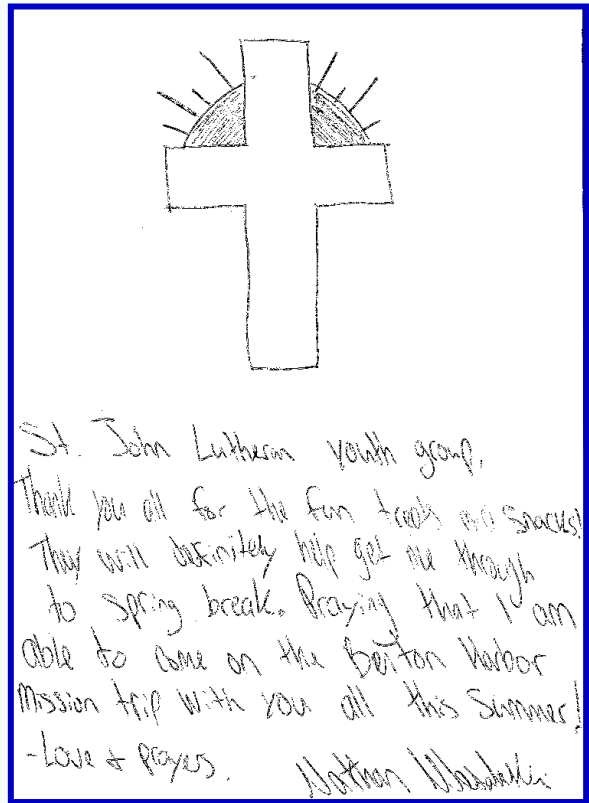 St. John Lutheran youth group,
Thank you all for the fun treats and snacks!
They will definitely help get me through
to spring break. Praying that I am
able to come on the Benton Harbor
Mission trip with you all this summer!
-Love & prayers,
Nathan